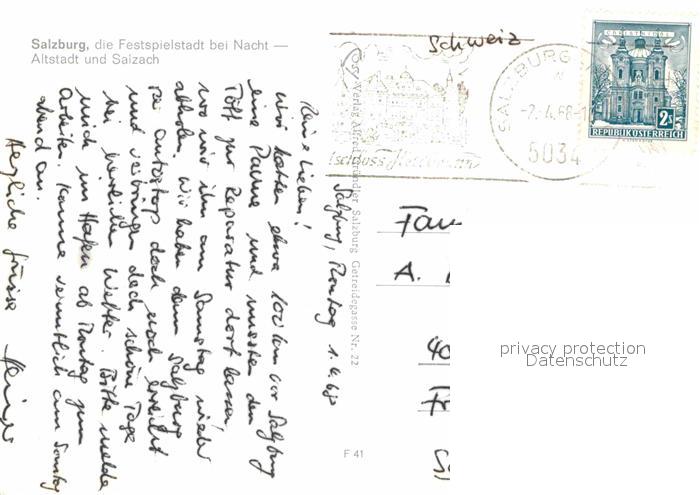 Salzburg, die Festspielstadt bei Nacht —
Altstadt und Salzach
Salzburg, Montag 1.4.68
Meine Lieben!
Wir hatten etwa 100 km vor Salzburg
eine Panne und mussten den
Töff zur Reparatur dort lassen,
wo wir ihn am Samstag wieder
abholen. Wir haben dann Salzburg
per Autostop doch noch erreicht
und verbringen doch schöne Tage
bei herrlichem Wetter. Bitte melde
mich im Hafen ab Montag zum
Arbeiten. Komme vermutlich am Sonntag
abend an.
Herzliche Grüsse
Verlag Alfred Gründler Salzburg Getreidegasse Nr. 22
F 41
Schweiz
SALZBURG
-2.-4.68-1
5034
CHRISTKINDL
2S
REPUBLIK ÖSTERREICH
Fam
A.
40
privacy protection
Datenschutz